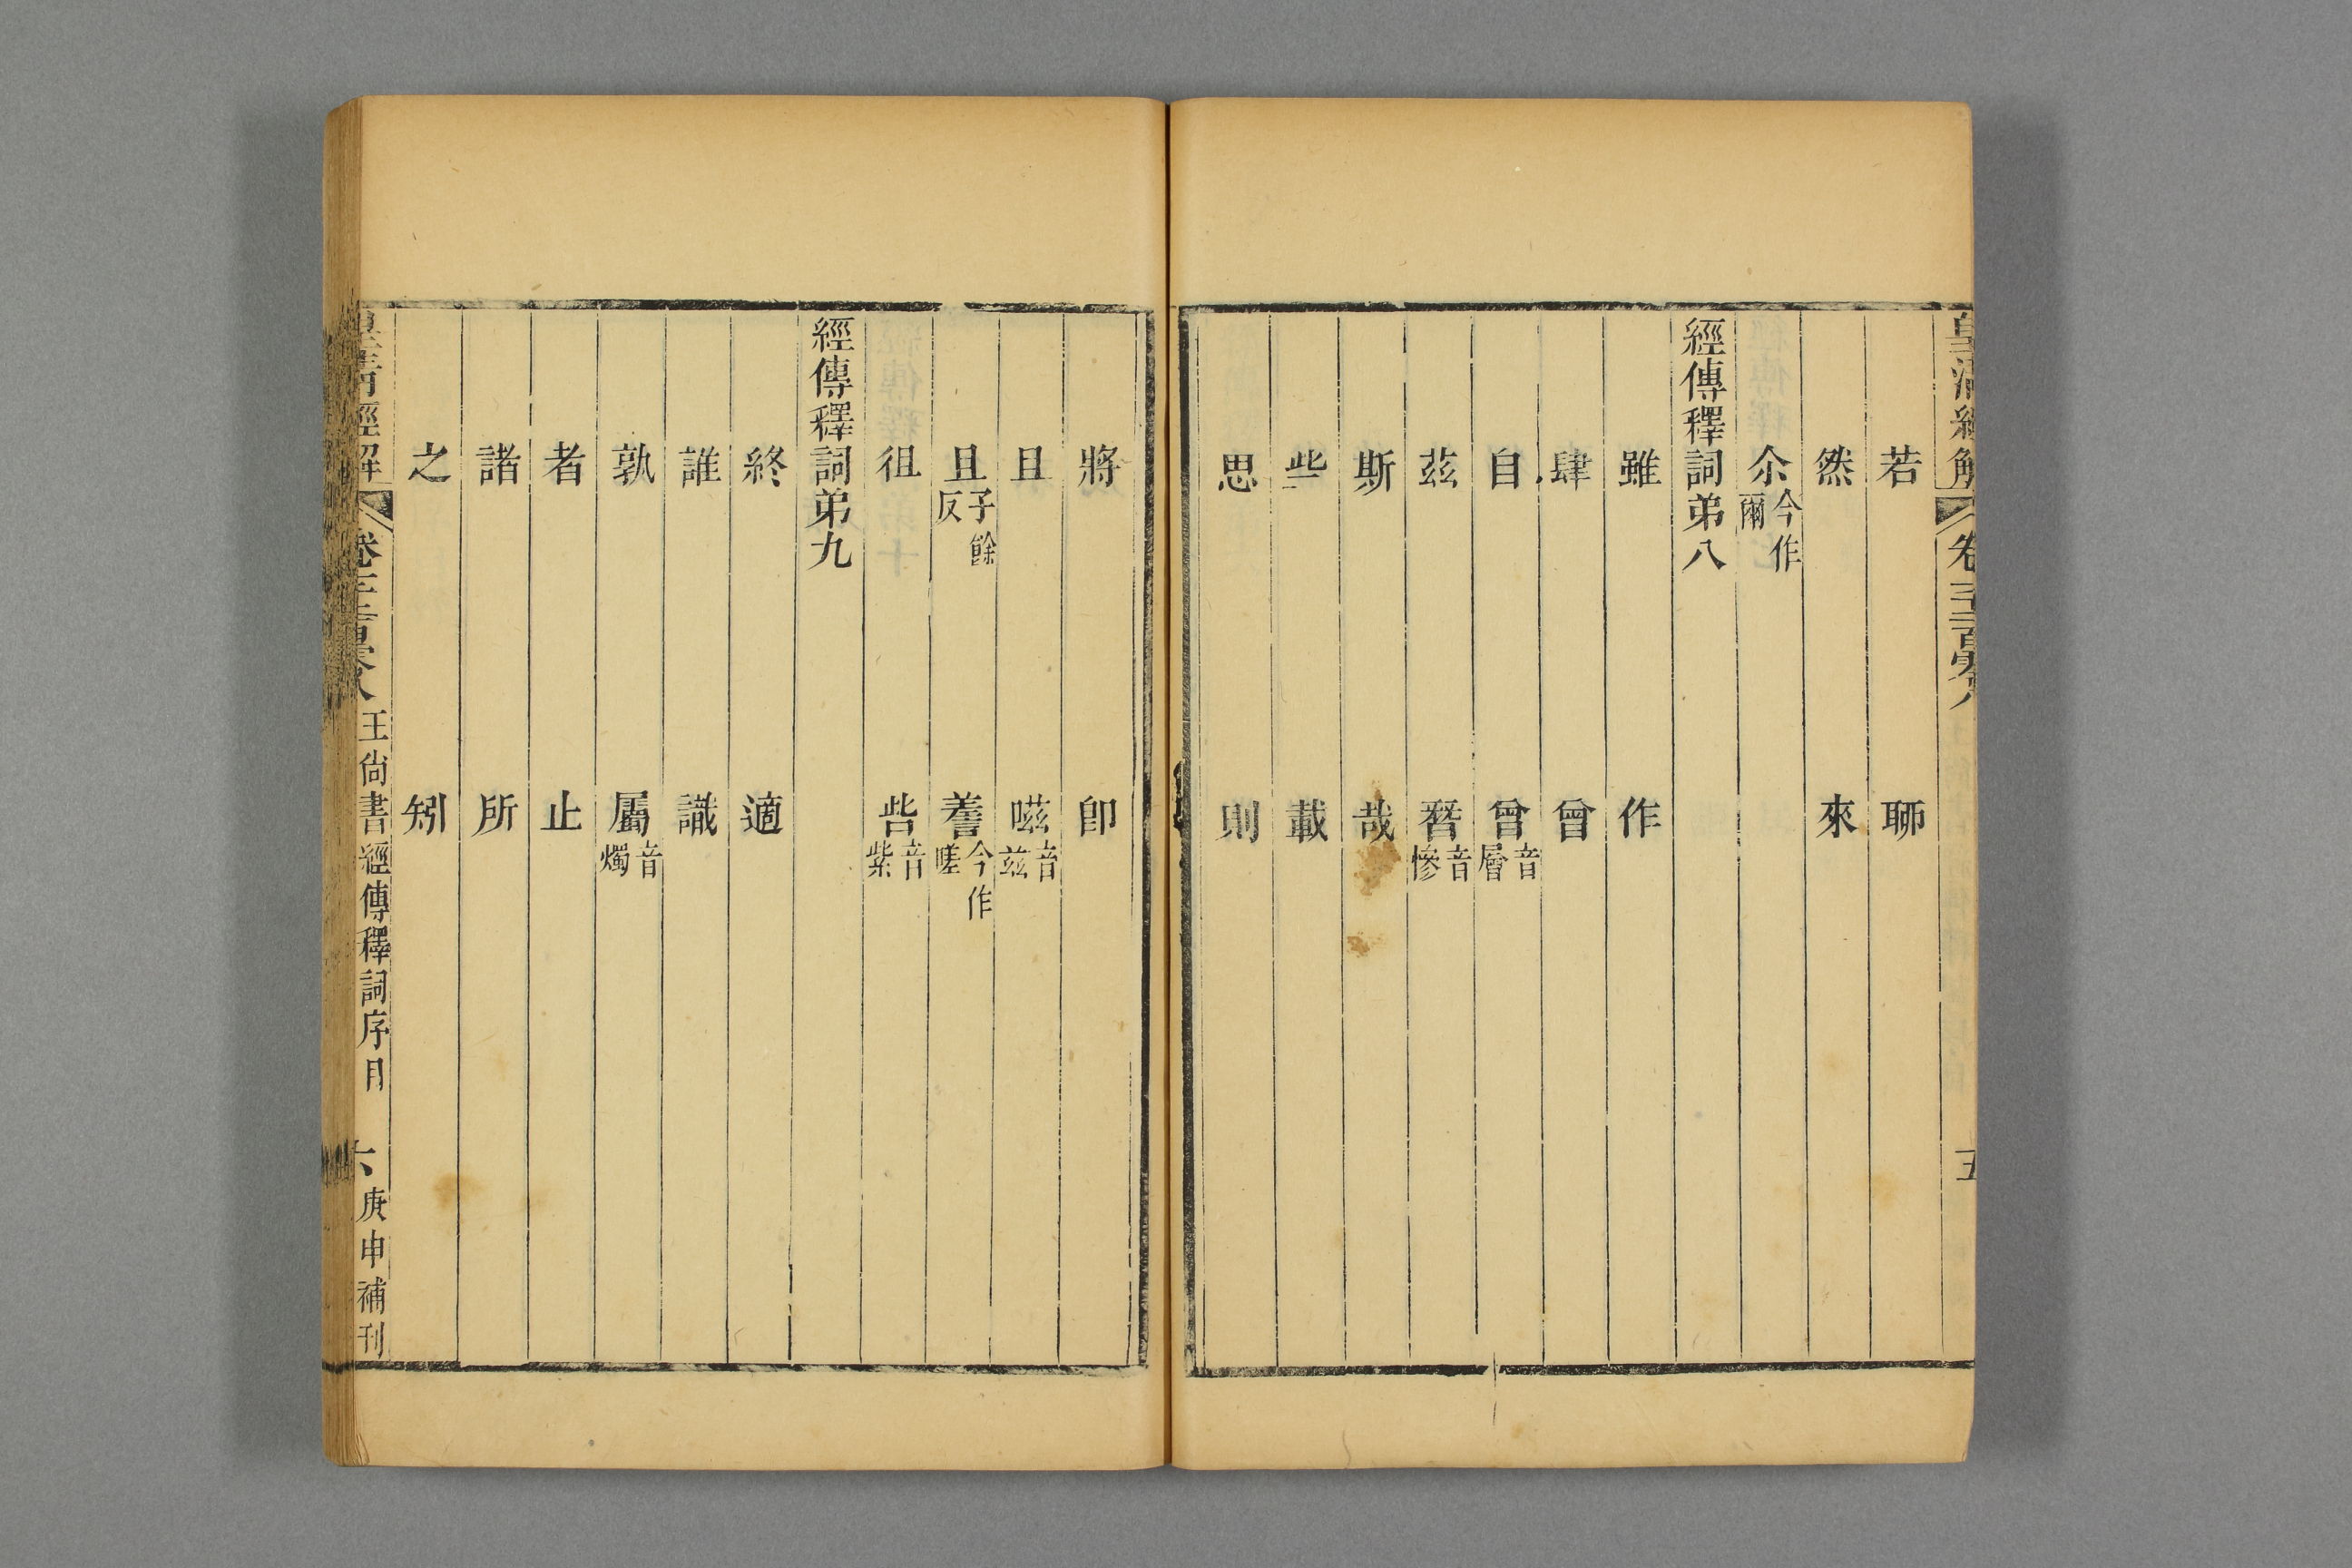 若　聊
然　來
尒今作爾
經傳釋詞弟八
雖　作
肆　曾
自　曾音層
茲　朁音慘
斯　哉
些　載
思　則
將　卽
且　嗞音茲
且子餘反　𧬅今作嗟
徂　呰音紫
經傳釋詞弟九
終　適
誰　識
孰　屬音燭
者　止
諸　所
之　矧
皇清經解　卷千二百零八　王尙書經傳釋詞序目　六　庚申補刊